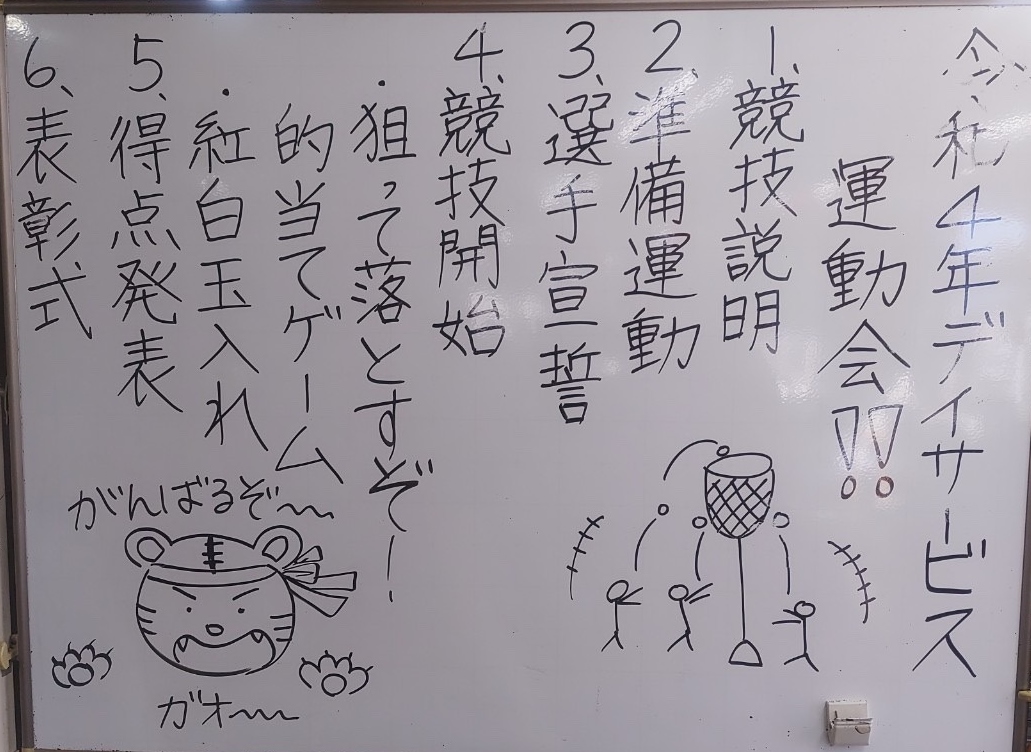 令和4年デイサービス
運動会!!
1、競技説明
2、準備運動
3、選手宣誓
4、競技開始
・狙って落とすぞー!
的当てゲーム
・紅白玉入れ
5、得点発表
6、表彰式
がんばるぞ〜
ガオ〜